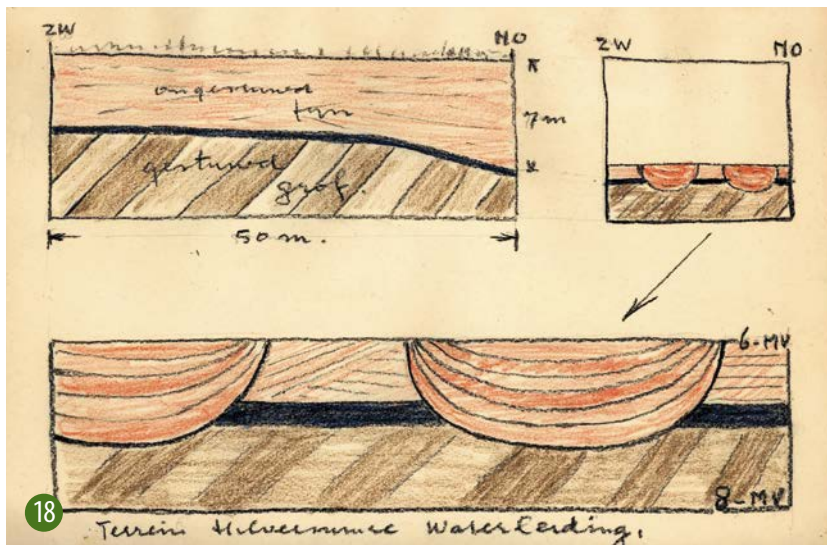 ZW NO
ZW NO
ongestuwd
fijn
7 m
gestuwd
grof.
50 m.
6-MV
8-MV
18
Terrein Hilversumse Waterleiding.